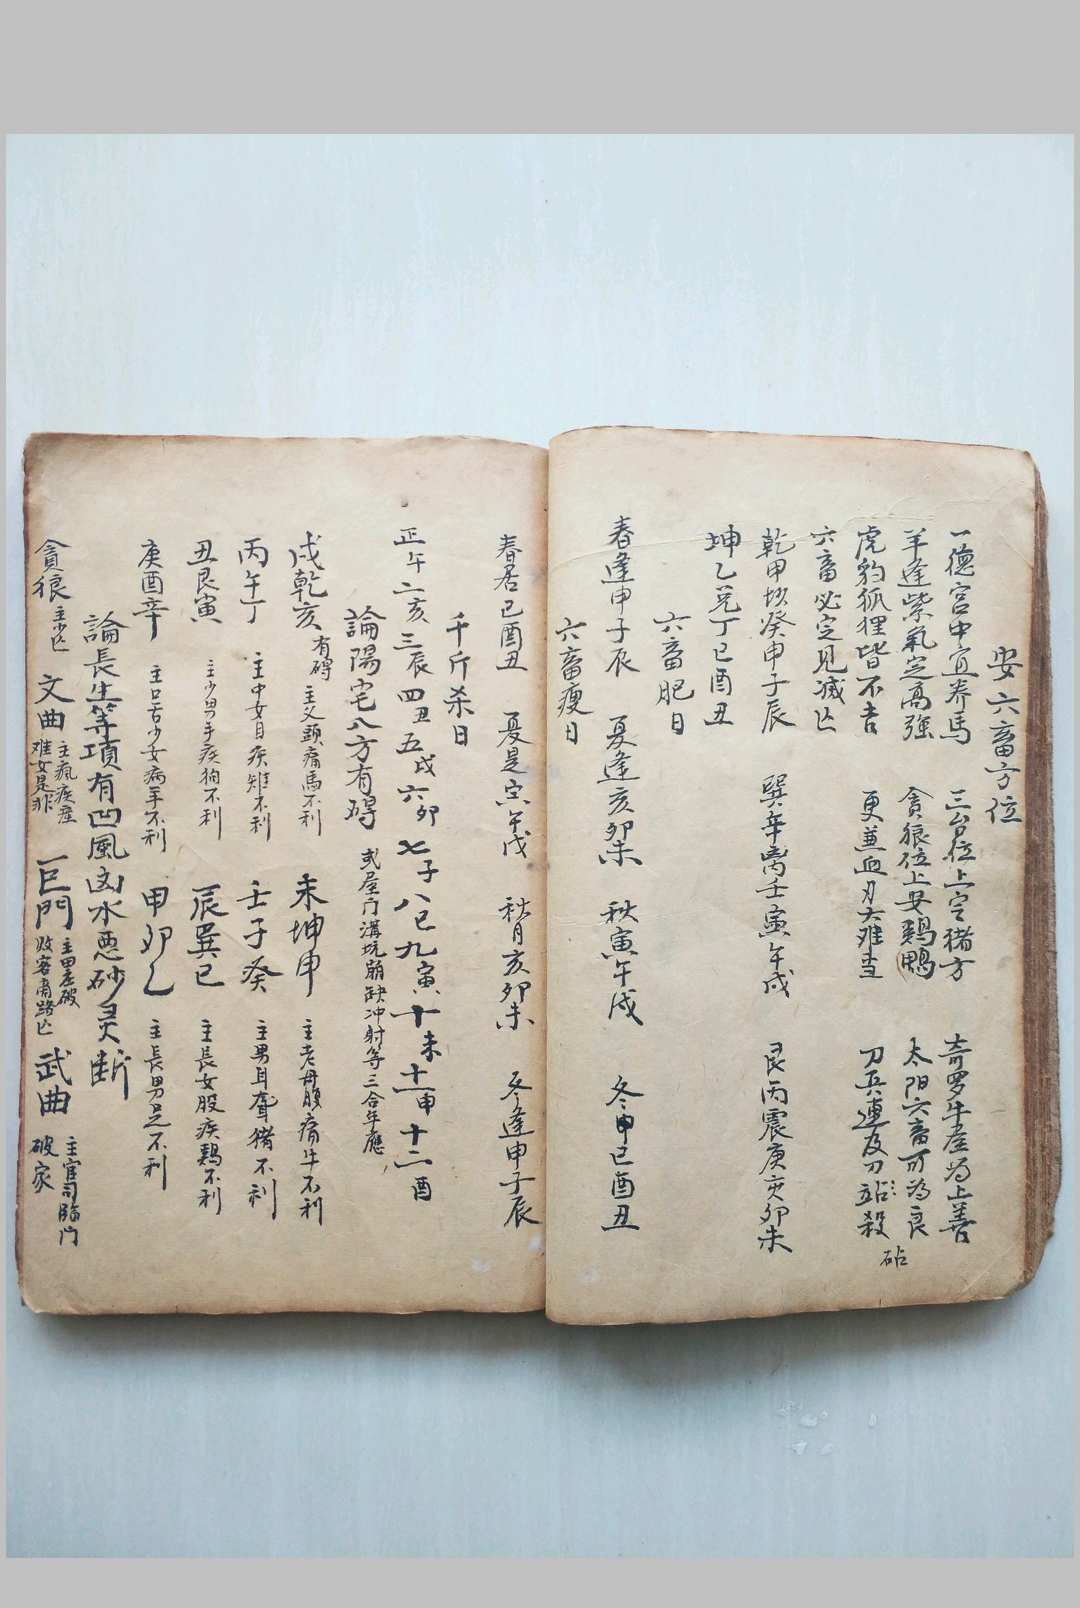 安六畜方位
一德宮中宜养馬 三台位上定猪方 奇罗牛產为上善
羊逢紫氣定高強 貪狼位上安鷄鴨 太阳六畜可为良
虎豹狐狸皆不吉 更兼血刃大难当 刀兵連及刀站殺
砧
六畜必定見滅亡
乾甲坎癸申子辰 巽辛离壬寅午戌 艮丙震庚亥卯未
坤乙兑丁巳酉丑
六畜肥日
春逢申子辰 夏逢亥卯未 秋寅午戌 冬甲巳酉丑
六畜瘦日
春居巳酉丑 夏是寅午戌 秋月亥卯未 冬逢申子辰
千斤杀日
正午二亥三辰四丑五戌六卯七子八巳九寅十未十一申十二酉
論陽宅八方有碍 或屋门溝坑崩缺冲射等三合年應
戌乾亥 有碍 主父頭痛馬不利 未坤申 主老母腹痛牛不利
丙午丁 主中女目疾雉不利 壬子癸 主男耳聋猪不利
丑艮寅 主少男手疾狗不利 辰巽巳 主長女股疾鷄不利
庚酉辛 主口舌少女病羊不利 甲卯乙 主長男足不利
論長生等項有凹風凶水恶砂灵断
貪狼 主少亡 文曲 主瘋疾產难女是非 巨門 主田产破败客商路亡 武曲 主官司臨门破家